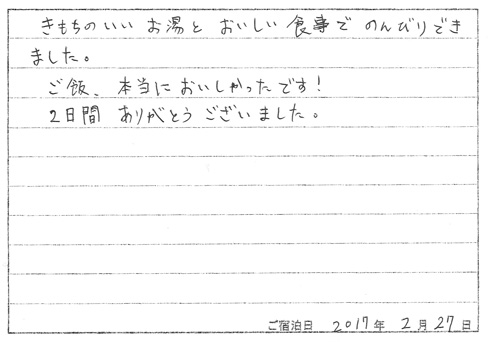 きもちのいい お湯と おいしい 食事で のんびりでき
ました。
ご飯、本当に おいしかったです!
2日間 ありがとう ございました。
ご宿泊日 2017年 2月 27日